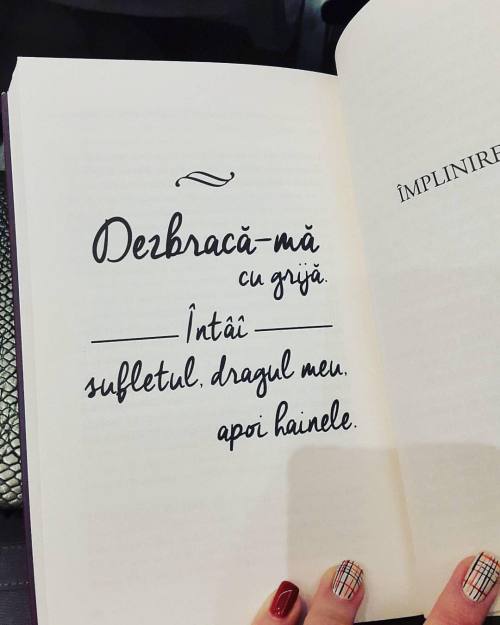 Dezbracă-mă
cu grijă.
Întâî
sufletul, dragul meu,
apoi hainele.
ÎMPLINIRE